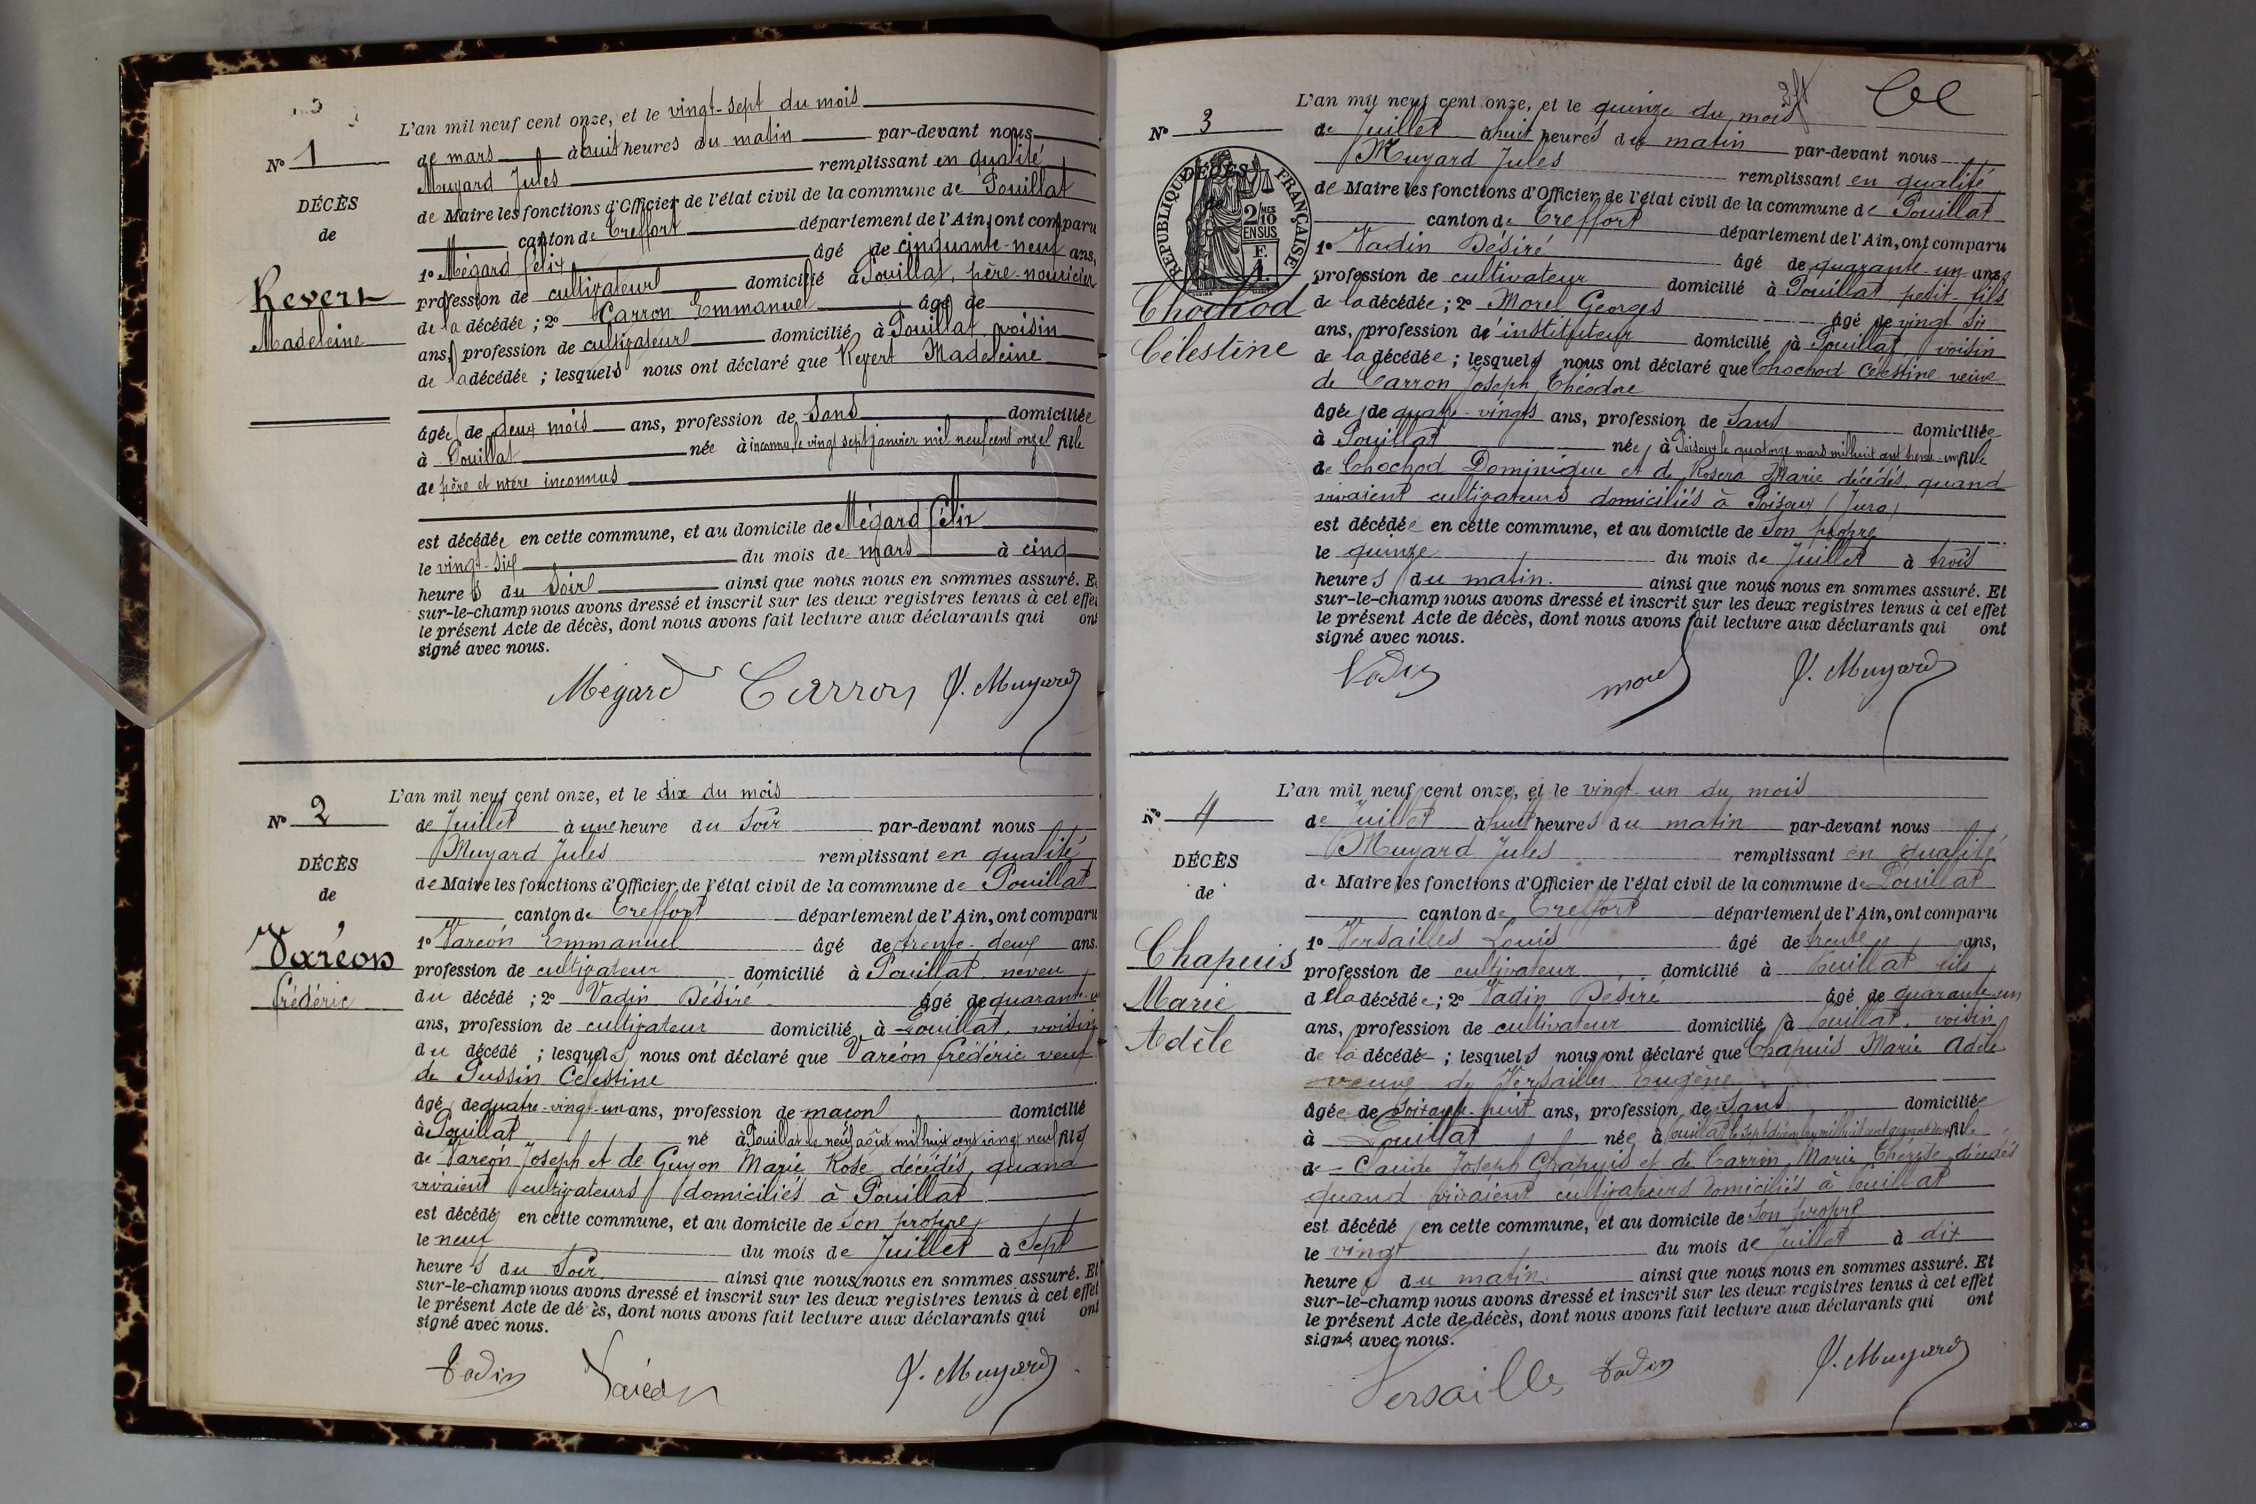 L'an mil neuf cent onze, et le vingt-sept du mois
N° 1
de mars à huit heures du matin par-devant nous
Muyard Jules remplissant en qualité
DÉCÈS
de Maire les fonctions d'Officier de l'état civil de la commune de Pouillat
de
canton de Treffort département de l'Ain, ont comparu
1° Mégard Félix âgé de cinquante-neuf ans,
Revert
profession de cultivateur domicilié à Pouillat, père-nourricier
de la décédée ; 2° Carron Emmanuel âgé de
Madeleine
ans, profession de cultivateur domicilié à Pouillat, voisin
de la décédée ; lesquels nous ont déclaré que Revert Madeleine
âgée de deux mois ans, profession de Sans domiciliée
à Pouillat née à inconnu, le vingt sept janvier mil neuf cent onze fille
de père et mère inconnus
est décédée en cette commune, et au domicile de Mégard Félix
le vingt-six du mois de mars à cinq
heures du Soir ainsi que nous nous en sommes assuré. Et
sur-le-champ nous avons dressé et inscrit sur les deux registres tenus à cet effet
le présent Acte de décès, dont nous avons fait lecture aux déclarants qui ont
signé avec nous.
Mégard Carron J. Muyard
L'an mil neuf cent onze, et le dix du mois
N° 2
de Juillet à une heure du Soir par-devant nous
Muyard Jules remplissant en qualité
DÉCÈS
de Maire les fonctions d'Officier de l'état civil de la commune de Pouillat
de
canton de Treffort département de l'Ain, ont comparu
1° Varéon Emmanuel âgé de trente-deux ans.
Varéon
profession de cultivateur domicilié à Pouillat, neveu
Frédéric
du décédé ; 2° Vadin Désiré âgé de quarante-un
ans, profession de cultivateur domicilié à Pouillat, voisin
du décédé ; lesquels nous ont déclaré que Varéon Frédéric veuf
de Pussin Celestine
âgé de quatre-vingt-un ans, profession de maçon domicilié
à Pouillat né à Pouillat le neuf août mil huit cent vingt neuf fils
de Varéon Joseph et de Guyon Marie Rose, décédés, quand
vivaient cultivateurs domiciliés à Pouillat
est décédé en cette commune, et au domicile de Son propre
le neuf du mois de Juillet à Sept
heures du Soir ainsi que nous nous en sommes assuré. Et
sur-le-champ nous avons dressé et inscrit sur les deux registres tenus à cet effet
le présent Acte de décès, dont nous avons fait lecture aux déclarants qui ont
signé avec nous.
Vadin Varéon J. Muyard
L'an mil neuf cent onze, et le quinze du mois
N° 3
de Juillet à huit heures du matin par-devant nous
Muyard Jules remplissant en qualité
DÉCÈS
RÉPUBLIQUE FRANÇAISE
2/10 EN SUS
F. 1.
de Maire les fonctions d'Officier de l'état civil de la commune de Pouillat
canton de Treffort département de l'Ain, ont comparu
1° Vadin Désiré âgé de quarante-un ans
profession de cultivateur domicilié à Pouillat, petit-fils
Chochod
de la décédée ; 2° Morel Georges âgé de vingt six
Célestine
ans, profession d'instituteur domicilié à Pouillat voisin
de la décédée ; lesquels nous ont déclaré que Chochod Célestine veuve
de Carron Joseph Théodore
âgée de quatre-vingts ans, profession de Sans domiciliée
à Pouillat née à Poisoux le quatorze mars mil huit cent trente-un fille
de Chochod Dominique et de Rosera Marie décédés, quand
vivaient cultivateurs domiciliés à Poisoux (Jura)
est décédée en cette commune, et au domicile de Son propre
le quinze du mois de Juillet à trois
heures du matin. ainsi que nous nous en sommes assuré. Et
sur-le-champ nous avons dressé et inscrit sur les deux registres tenus à cet effet
le présent Acte de décès, dont nous avons fait lecture aux déclarants qui ont
signé avec nous.
Vadin Morel J. Muyard
L'an mil neuf cent onze, et le vingt-un du mois
N° 4
de Juillet à huit heures du matin par-devant nous
Muyard Jules remplissant en qualité
DÉCÈS
de Maire les fonctions d'Officier de l'état civil de la commune de Pouillat
de
canton de Treffort département de l'Ain, ont comparu
1° Versailles Louis âgé de trente ans,
Chapuis
profession de cultivateur domicilié à Pouillat fils
Marie
de la décédée ; 2° Vadin Désiré âgé de quarante-un
ans, profession de cultivateur domicilié à Pouillat, voisin
Adèle
de la décédé ; lesquels nous ont déclaré que Chapuis Marie Adèle
veuve de Versailles Eugène
âgée de Soixante-huit ans, profession de Sans domiciliée
à Pouillat née à Pouillat le sept mil huit cent quarante deux fille
de Claude Joseph Chapuis et de Carron Marie Thérèse, décédés
quand vivaient cultivateurs domiciliés à Pouillat
est décédé en cette commune, et au domicile de Son propre
le vingt du mois de Juillet à dix
heures du matin. ainsi que nous nous en sommes assuré. Et
sur-le-champ nous avons dressé et inscrit sur les deux registres tenus à cet effet
le présent Acte de décès, dont nous avons fait lecture aux déclarants qui ont
signé avec nous.
Versailles Vadin J. Muyard